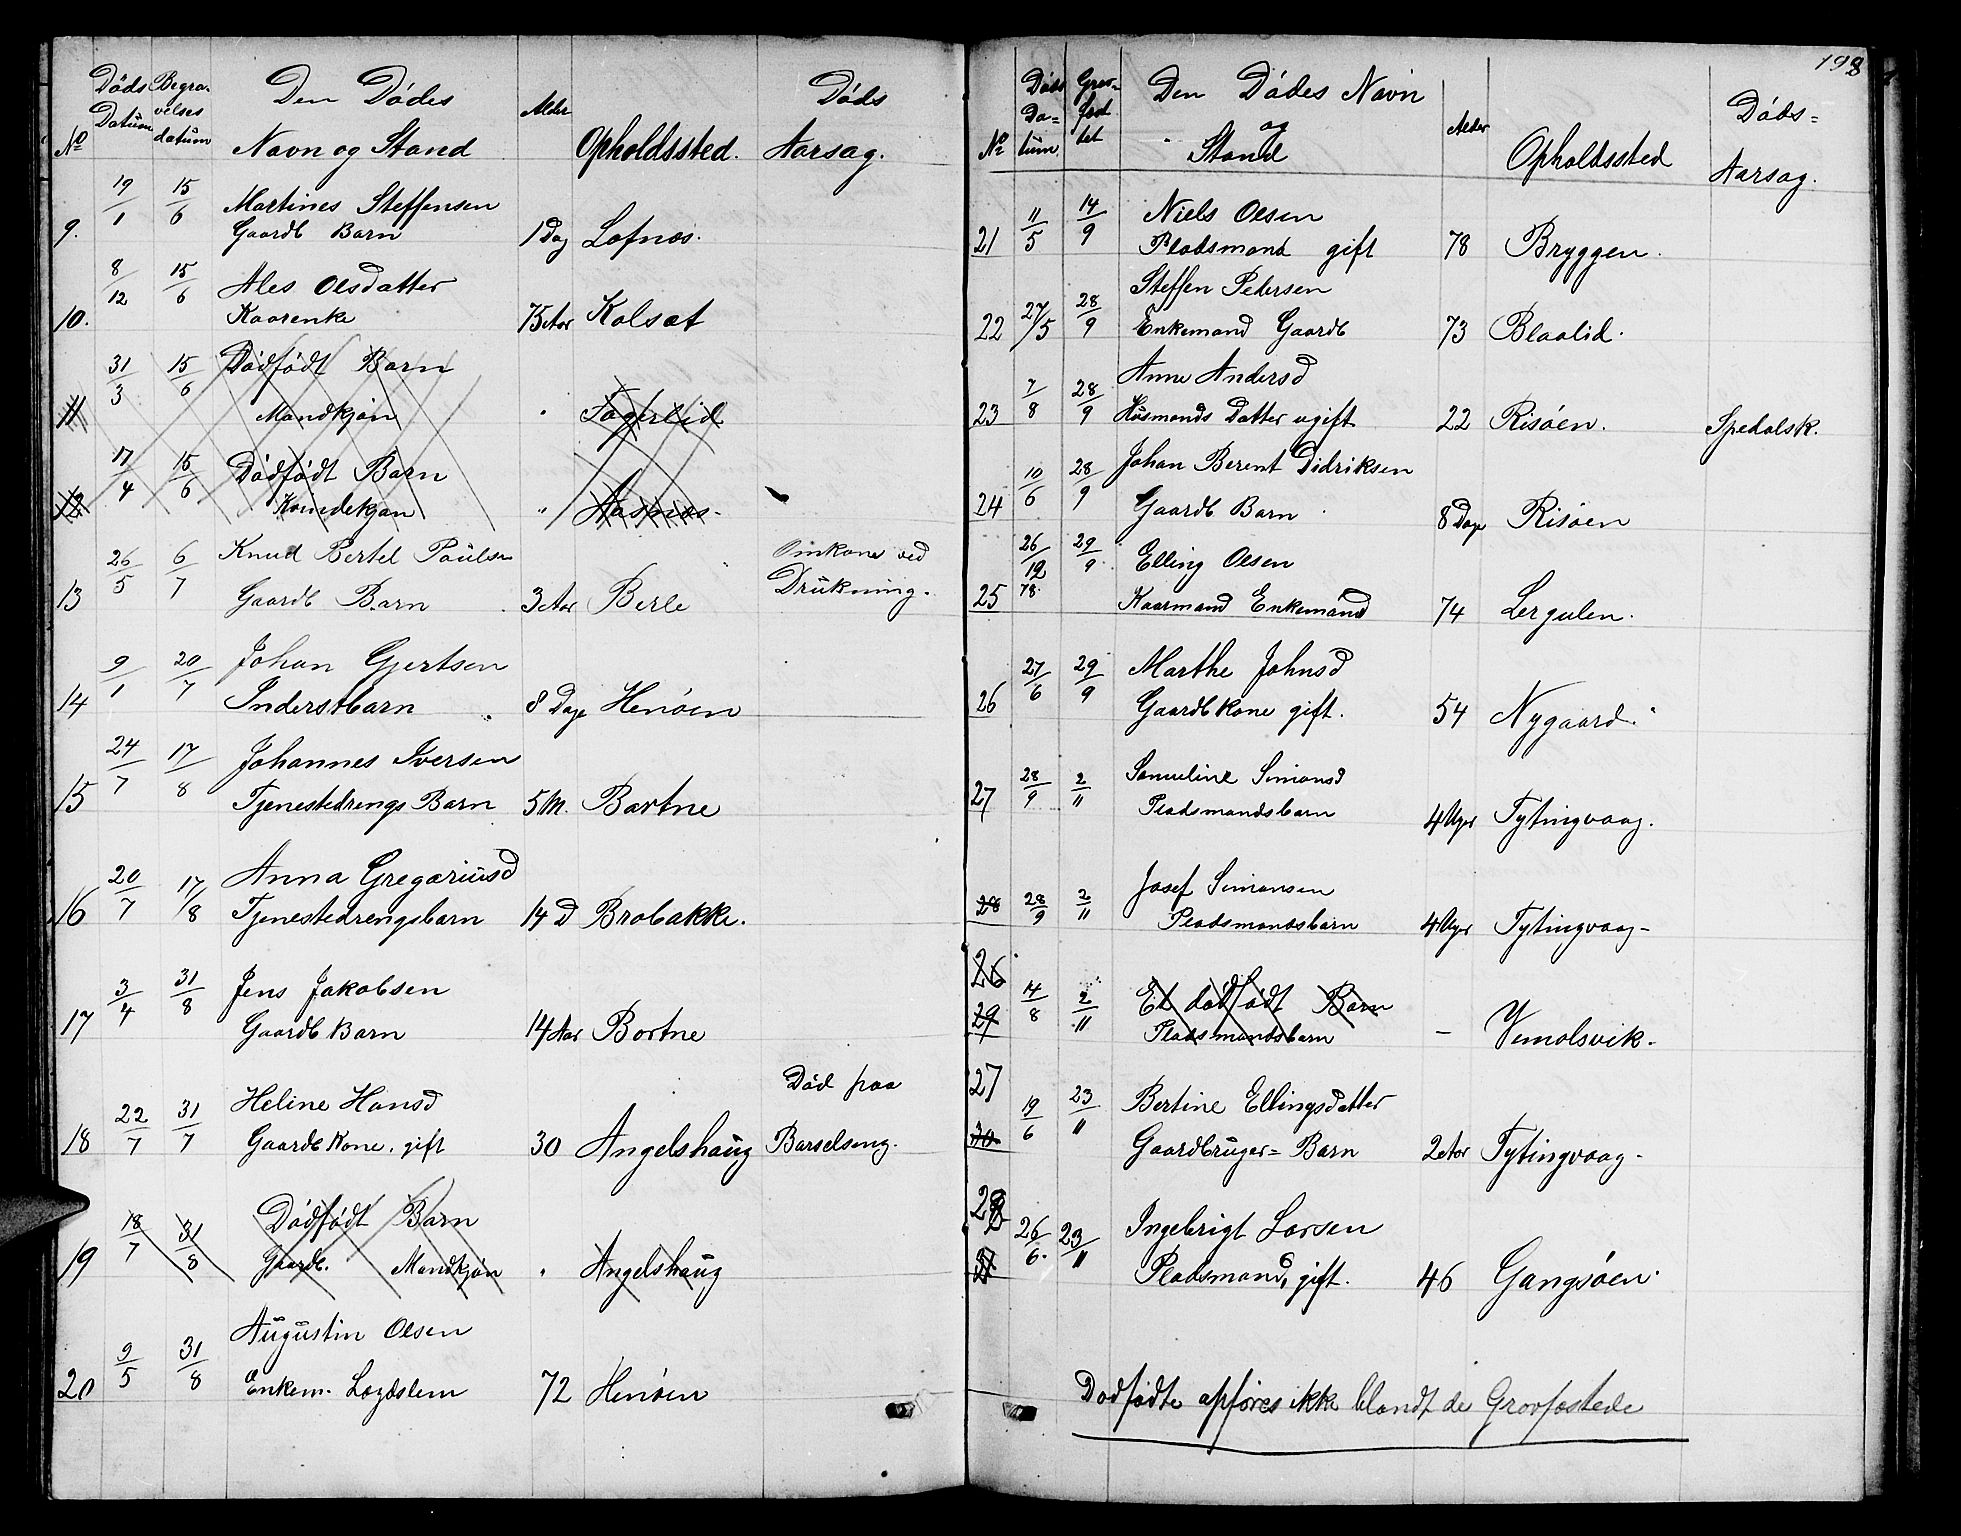 Døds Begra-
Datum velses
datum
Den Dødes
Navn og Stand
Alder
Opholdssted.
Døds
Aarsag.
No
9. 19/1 15/6 Martines Steffensen
Gaardb Barn 1 Dag Lofnæs.
10. 8/12 15/6 Ales Olsdatter
Kaarenke 75 Aar Kolsæt
11 31/3 15/6 Dødfødt Barn
Mandkjøn " Fagerlid
12 17/4 15/6 Dødfødt Barn
Kvindekjøn " Aasnæs.
13 26/5 6/7 Knud Bertel Paulsen Omkom ved
Gaardb Barn 3 Aar Berle Drukning.
14 9/1 20/7 Johan Gjertsen
Inderstbarn 8 Dage Henøen
15 24/7 17/8 Johannes Iversen
Tjenestedrengs Barn 5 M. Bortne
16 20/7 17/8 Anna Gregoriusd
Tjenestedrengsbarn 14 D Brobakke.
17 3/4 31/8 Jens Jakobsen
Gaardb Barn 14 Aar Bortne
18 22/7 31/7 Heline Hansd Død paa
Gaardb Kone, gift 30 Angelshaug Barselseng.
19 18/7 31/8 Dødfødt Barn
Gaardb. Mandkjøn " Angelshaug
20 9/5 31/8 Augustin Olsen
Enkem. Lægdslem 72 Henøen
198
No
Døds
Da=
tum.
Grav-
fæst
tet
Den Dødes Navn
og
Stand
Alder
Opholdssted
Døds=
Aarsag.
21 11/5 14/9 Niels Olsen
Pladsmand gift 78 Bryggen.
22 27/5 28/9 Steffen Pedersen
Enkemand Gaardb 73 Blaalid.
23 7/8 28/9 Anne Andersd
Husmands Datter ugift 22 Risøen. Spedalsk.
24 10/6 28/9 Johan Berent Didriksen
Gaardb Barn 8 Dage Risøen
25 26/12 78. 29/9 Elling Olsen
Kaarmand Enkemand 74 Lergulen.
26 27/6 29/9 Marthe Johnsd
Gaardb Kone gift. 54 Nygaard.
27 28/9 2/11 Samueline Simonsd
Pladsmandsbarn 4 Uger Tytingvaag.
28 28/9 2/11 Josef Simonsen
Pladsmandsbarn 4 Uger Tytingvaag-
26
29 14/8 2/11 Et dødfødt Barn
Pladsmandsbarn - Vemolsvik-
27
30 19/6 23/11 Bertine Ellingsdatter
Gaardbruger= Barn 2 Aar Tytingvaag-
28
31 26/6. 23/11 Ingebrigt Larsen
Pladsmand, gift. 46 Gangsøen.
Dødfødte opføres ikke blandt de Gravfæstede